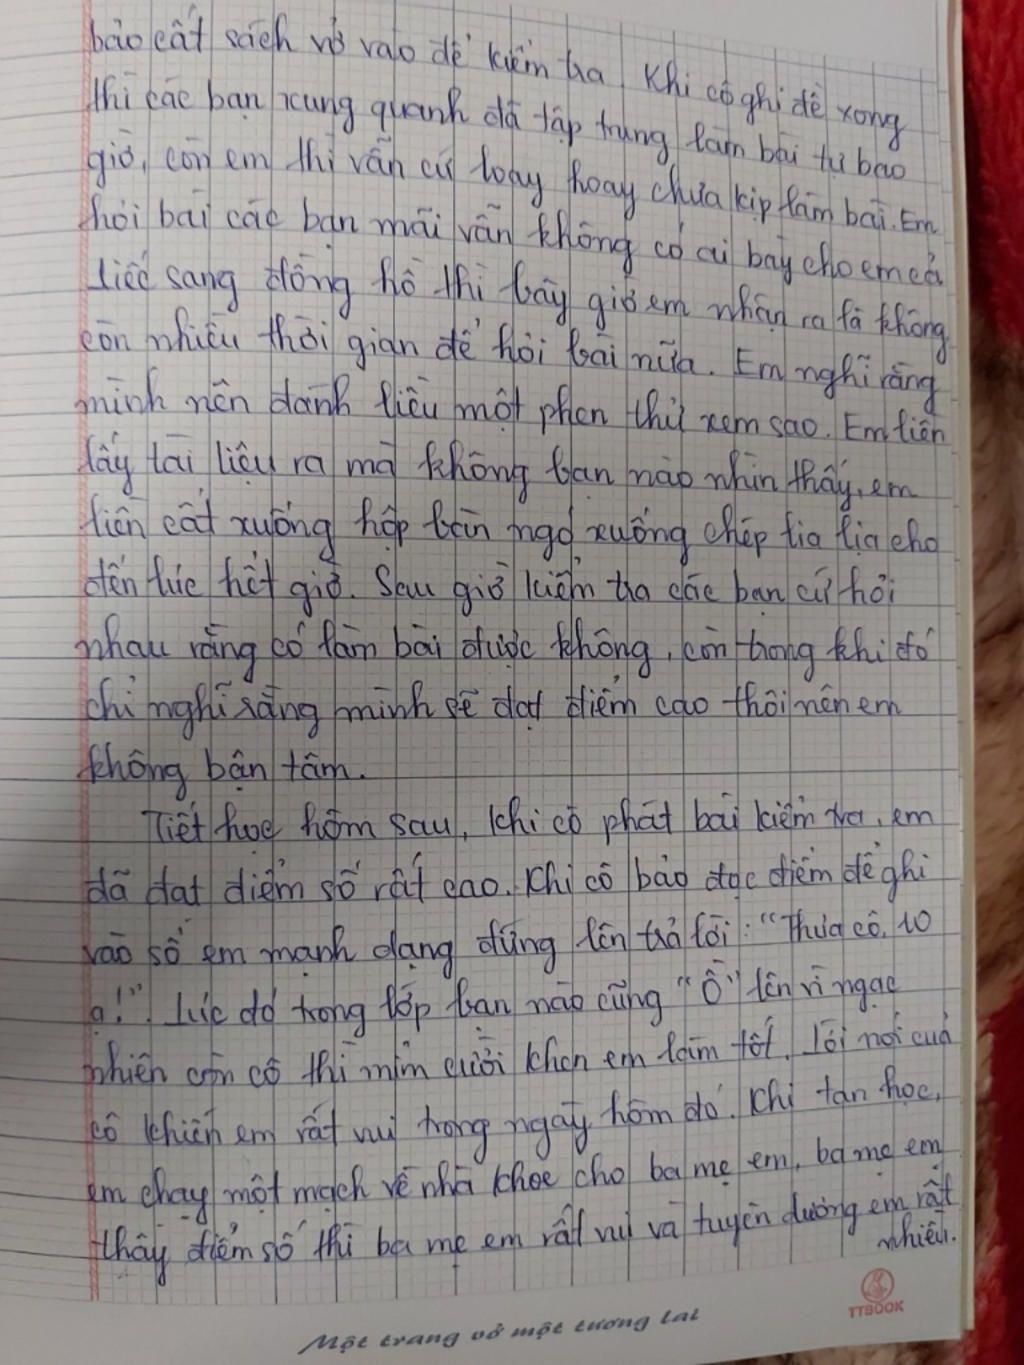 bảo cất sách vở vào để kiểm tra. Khi cô ghi đề xong
thì các bạn xung quanh đã tập trung làm bài tự bao
giờ, còn em thì vẫn cứ loay hoay chưa kịp làm bài. Em
hỏi bài các bạn mãi vẫn không có ai bày cho em cả
liếc sang đồng hồ thì bây giờ em nhận ra là không
còn nhiều thời gian để hỏi bài nữa. Em nghĩ rằng
mình nên đánh liều một phen thử xem sao. Em liền
lấy tài liệu ra mà không bạn nào nhìn thấy, em
liền cất xuống hộp bàn ngó xuống chép lia lịa cho
đến lúc hết giờ. Sau giờ kiểm tra các bạn cứ hỏi
nhau rằng có làm bài được không, còn trong khi đó
chỉ nghĩ rằng mình sẽ đạt điểm cao thôi nên em
không bận tâm.
Tiết học hôm sau, khi cô phát bài kiểm tra, em
đã đạt điểm số rất cao. Khi cô bảo đọc điểm để ghi
vào sổ em mạnh dạng đứng lên trả lời: "Thưa cô, 10
ạ!". Lúc đó trong lớp bạn nào cũng "Ồ" lên vì ngạc
nhiên còn cô thì mỉm cười khen em làm tốt. Lời nói của
cô khiến em rất vui trong ngày hôm đó. Khi tan học,
em chạy một mạch về nhà khoe cho ba mẹ em, ba mẹ em
thấy điểm số thì ba mẹ em rất vui và tuyên dương em rất
nhiều.
TTBOOK
Một trang vở một tương lai